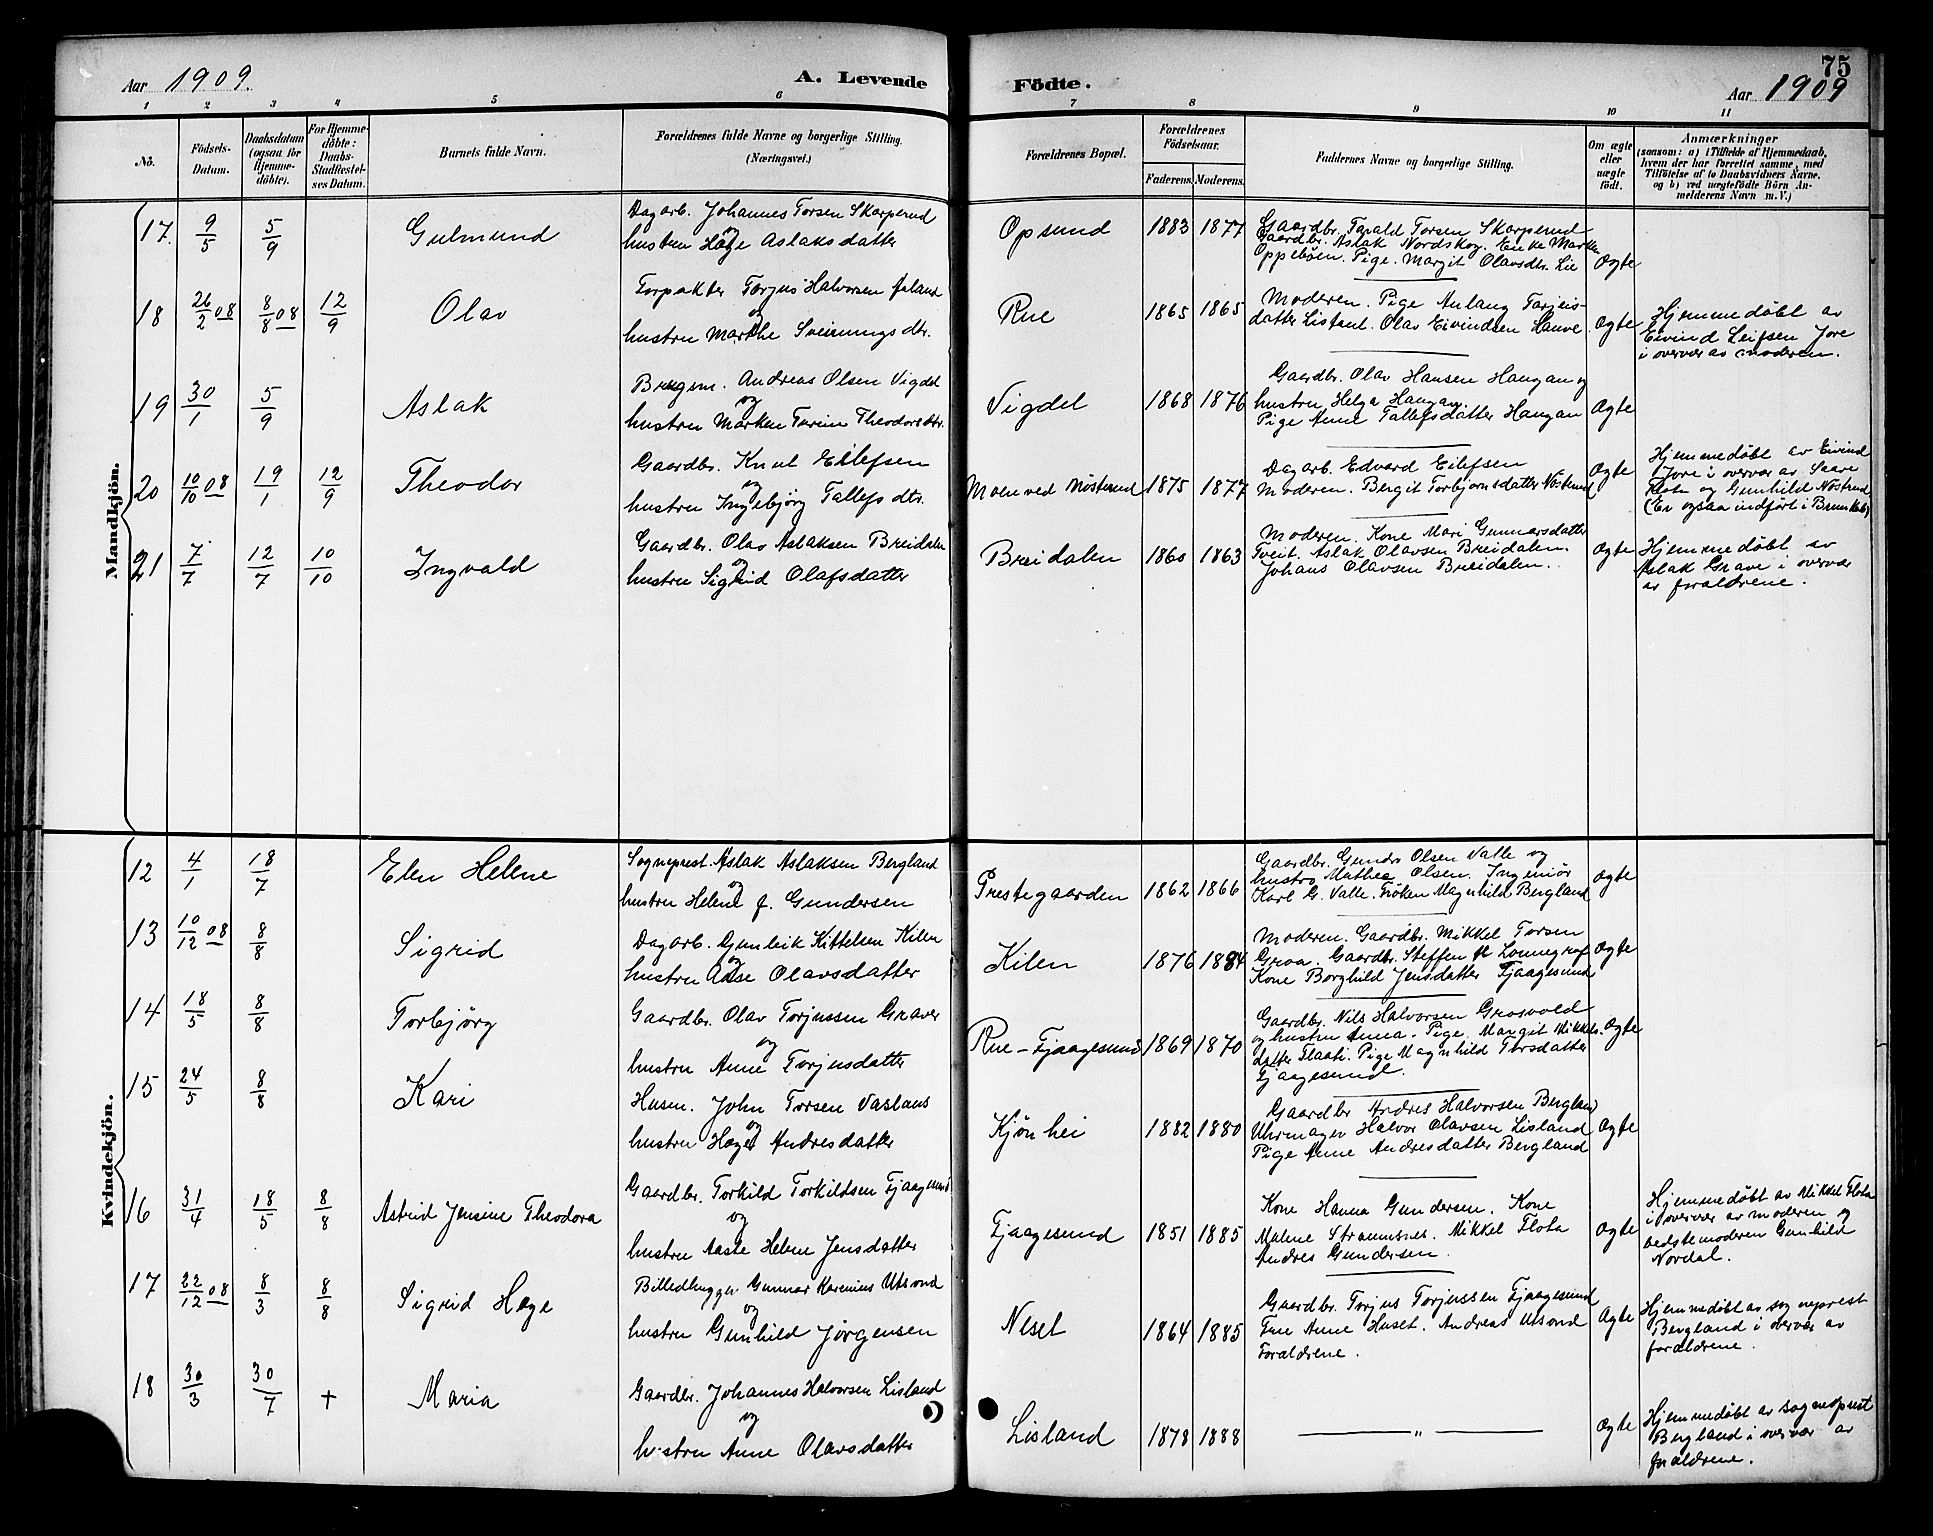 Aar 1909.
A. Levende
Födte.
75
Aar 1909
1 2 3 4 5 6 7 8 9 10 11
No.
Födsels-
Datum.
Daabsdatum
(ogsaa for
Hjemme-
döbte).
For Hjemme-
döbte:
Daabs-
Stadfæstel-
ses Datum.
Barnets fulde Navn.
Forældrenes fulde Navne og borgerlige Stilling.
(Næringsvei.)
Forældrenes Bopæl.
Forældrenes
Födselsaar.
Faderens. Moderens.
Faddernes Navne og borgerlige Stilling.
Om ægte
eller
uægte
födt.
Anmærkninger
(saasom: a) i Tilfælde af Hjemmedaab,
hvem der har forrettet samme, med
Tilföielse af to Daabsvidners Navne,
og b) ved uægtefödte Börn An-
melderens Navn m. V.)
Mandkjön.
17. 9/5 5/9 Gulmund
Dagarb. Johannes Torsen Skarperud
og
hustru Hæge Aslaksdatter
Opsund 1883 1877
Gaardbr. Tarald Torsen Skarperud
Gaardbr. Aslak Nordskog. Enke Marthe
Oppebøen. Pige. Margit Olavsdtr. Lie
Ægte
18 26/2 08 8/8 08 12/9 Olav
Forpakter Torjus Halvorsen
og
hustru Marthe Sveinungsdtr.
Rue 1865 1865
Moderen. Pige Anlaug Tarjeis-
datter Listaul. Olav Eivindsen Hauve
Ægte
Hjemmedøbt av
Eivind Leifsen Jore
i overvær av moderen.
19 30/1 5/9 Aslak
Brugsm. Andreas Olsen Vigdel
og
hustru Marken Turine Theodorsdtr.
Vigdel 1868 1876
Gaardbr. Olav Hansen Haugan og
hustru Helga Haugan.
Pige Anne Tallefsdatter Haugan
Ægte
20 10/10 08 19/1 12/9 Theodor
Gaardbr. Knut Eilefsen
og
hustru Ingebjørg Tallefsdtr.
Moen ved Nösterud 1875 1877
Dagarb. Edvard Eilefsen
Moderen. Bergit Torbjornsdatter Nösterud
Ægte
Hjemmedøbt av Eivind
Jore i overvær av Saave
Flota og Gunhild Nöstrud
(Er ogsaa indført i Brunkeb)
21 7/7 12/7 10/10 Ingvald
Gaardbr. Olav Aslaksen Breidalen
og
hustru Sigrid Olafsdatter
Breidalen 1860 1863
Moderen. Kone Mari Gunnarsdatter
Tveit. Aslak Olavsen Breidalen.
Johans Olavsen Breidalen.
Ægte
Hjemmedøbt av
Aslak Grave i overvær
av forældrene.
Kvindekjön.
12 4/1 18/7 Elen Helene
Sogneprest. Aslak Aslaksen Bergland
og
hustru Helene f. Gundersen
Prestegaarden 1862 1866
Gaardbr. Gundro Olsen Valle og
hustro Mathea Olsen. Ingeniör
Karl G. Valle. Fröken Magnhild Bergland
Ægte
13 10/12 08 8/8 Sigrid
Dagarb. Gunleik Kittelsen Kilen
og
hustru Aase Olavsdatter
Kilen 1876 1884
Moderen. Gaardbr. Mikkel Torsen
Groa. Gaardbr. Steffen Lonnegrav
Kone Borghild Jensdatter Fjaagesund
Ægte
14 18/5 8/8 Torbjörg
Gaardbr. Olav Torjussen Graver
og
hustru Anne Torjusdatter
Rue-Fjaagesund 1869 1870
Gaardbr. Nils Halvorsen Grosvold
og hustru Anna. Pige Margit Mikkels-
datter Flaati. Pige Magnhild Torsdatter
Fjaagesund.
Ægte
15 24/5 8/8 Kari
Husm. John Torsen Vaslaus
og
hustru Hæge Andresdatter
Kjönhei 1882 1880
Gaardbr Andres Halvorsen Bergland
Uhrmager Halvor Olavsen Lisland
Pige Anne Andresdatter Bergland
Ægte
16 31/4 18/5 8/8 Astrid Jensine Theodora
Gaardbr. Torkild Torkildsen Fjaagesund
og
hustru Aaste Helene Jensdatter
Fjaagesund 1851 1885
Kone Hanna Gundersen. Kone
Malene Straumsnes. Mikkel Flota
Andres Gundersen.
Ægte
Hjemmedøbt av Mikkel Flota
i overvær av moderen og
bedstemoderen Gunhild
Nordal.
17 22/12 08 8/3 8/8 Sigrid Hæge
Billedhugger Gunnar Karenius Utsond
og
hustru Gunhild Jørgensen
Neset 1864 1885
Gaardbr. Torjus Torjussen Fjaagesund
Frue Anne Huset. Andreas Utsond
Forældrene.
Ægte
Hjemmedøbt av sogneprest
Bergland i overvær av
forældrene.
18 30/3 30/7 + Maria
Gaardbr. Johannes Halvorsen Lisland
og
hustru Anne Olavsdatter
Lisland 1878 1888
— „ —
Ægte
Hjemmedøbt av sogneprest
Bergland i overvær av
forældrene.